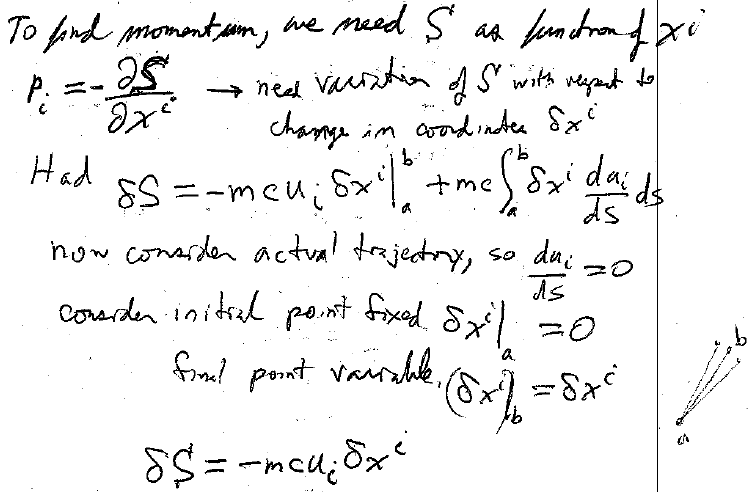 To find momentum, we need S as function of xⁱ
pᵢ = -∂S/∂xⁱ → need variation of S with respect to
change in coordinates δxⁱ
Had δS = -mcuᵢ δxⁱ|ₐᵇ + mc∫ₐᵇ δxⁱ duᵢ/ds ds
now consider actual trajectory, so duᵢ/ds = 0
consider initial point fixed δxⁱ|ₐ = 0
final point variable, (δxⁱ)_b = δxⁱ
b
a
δS = -mcuᵢ δxⁱ